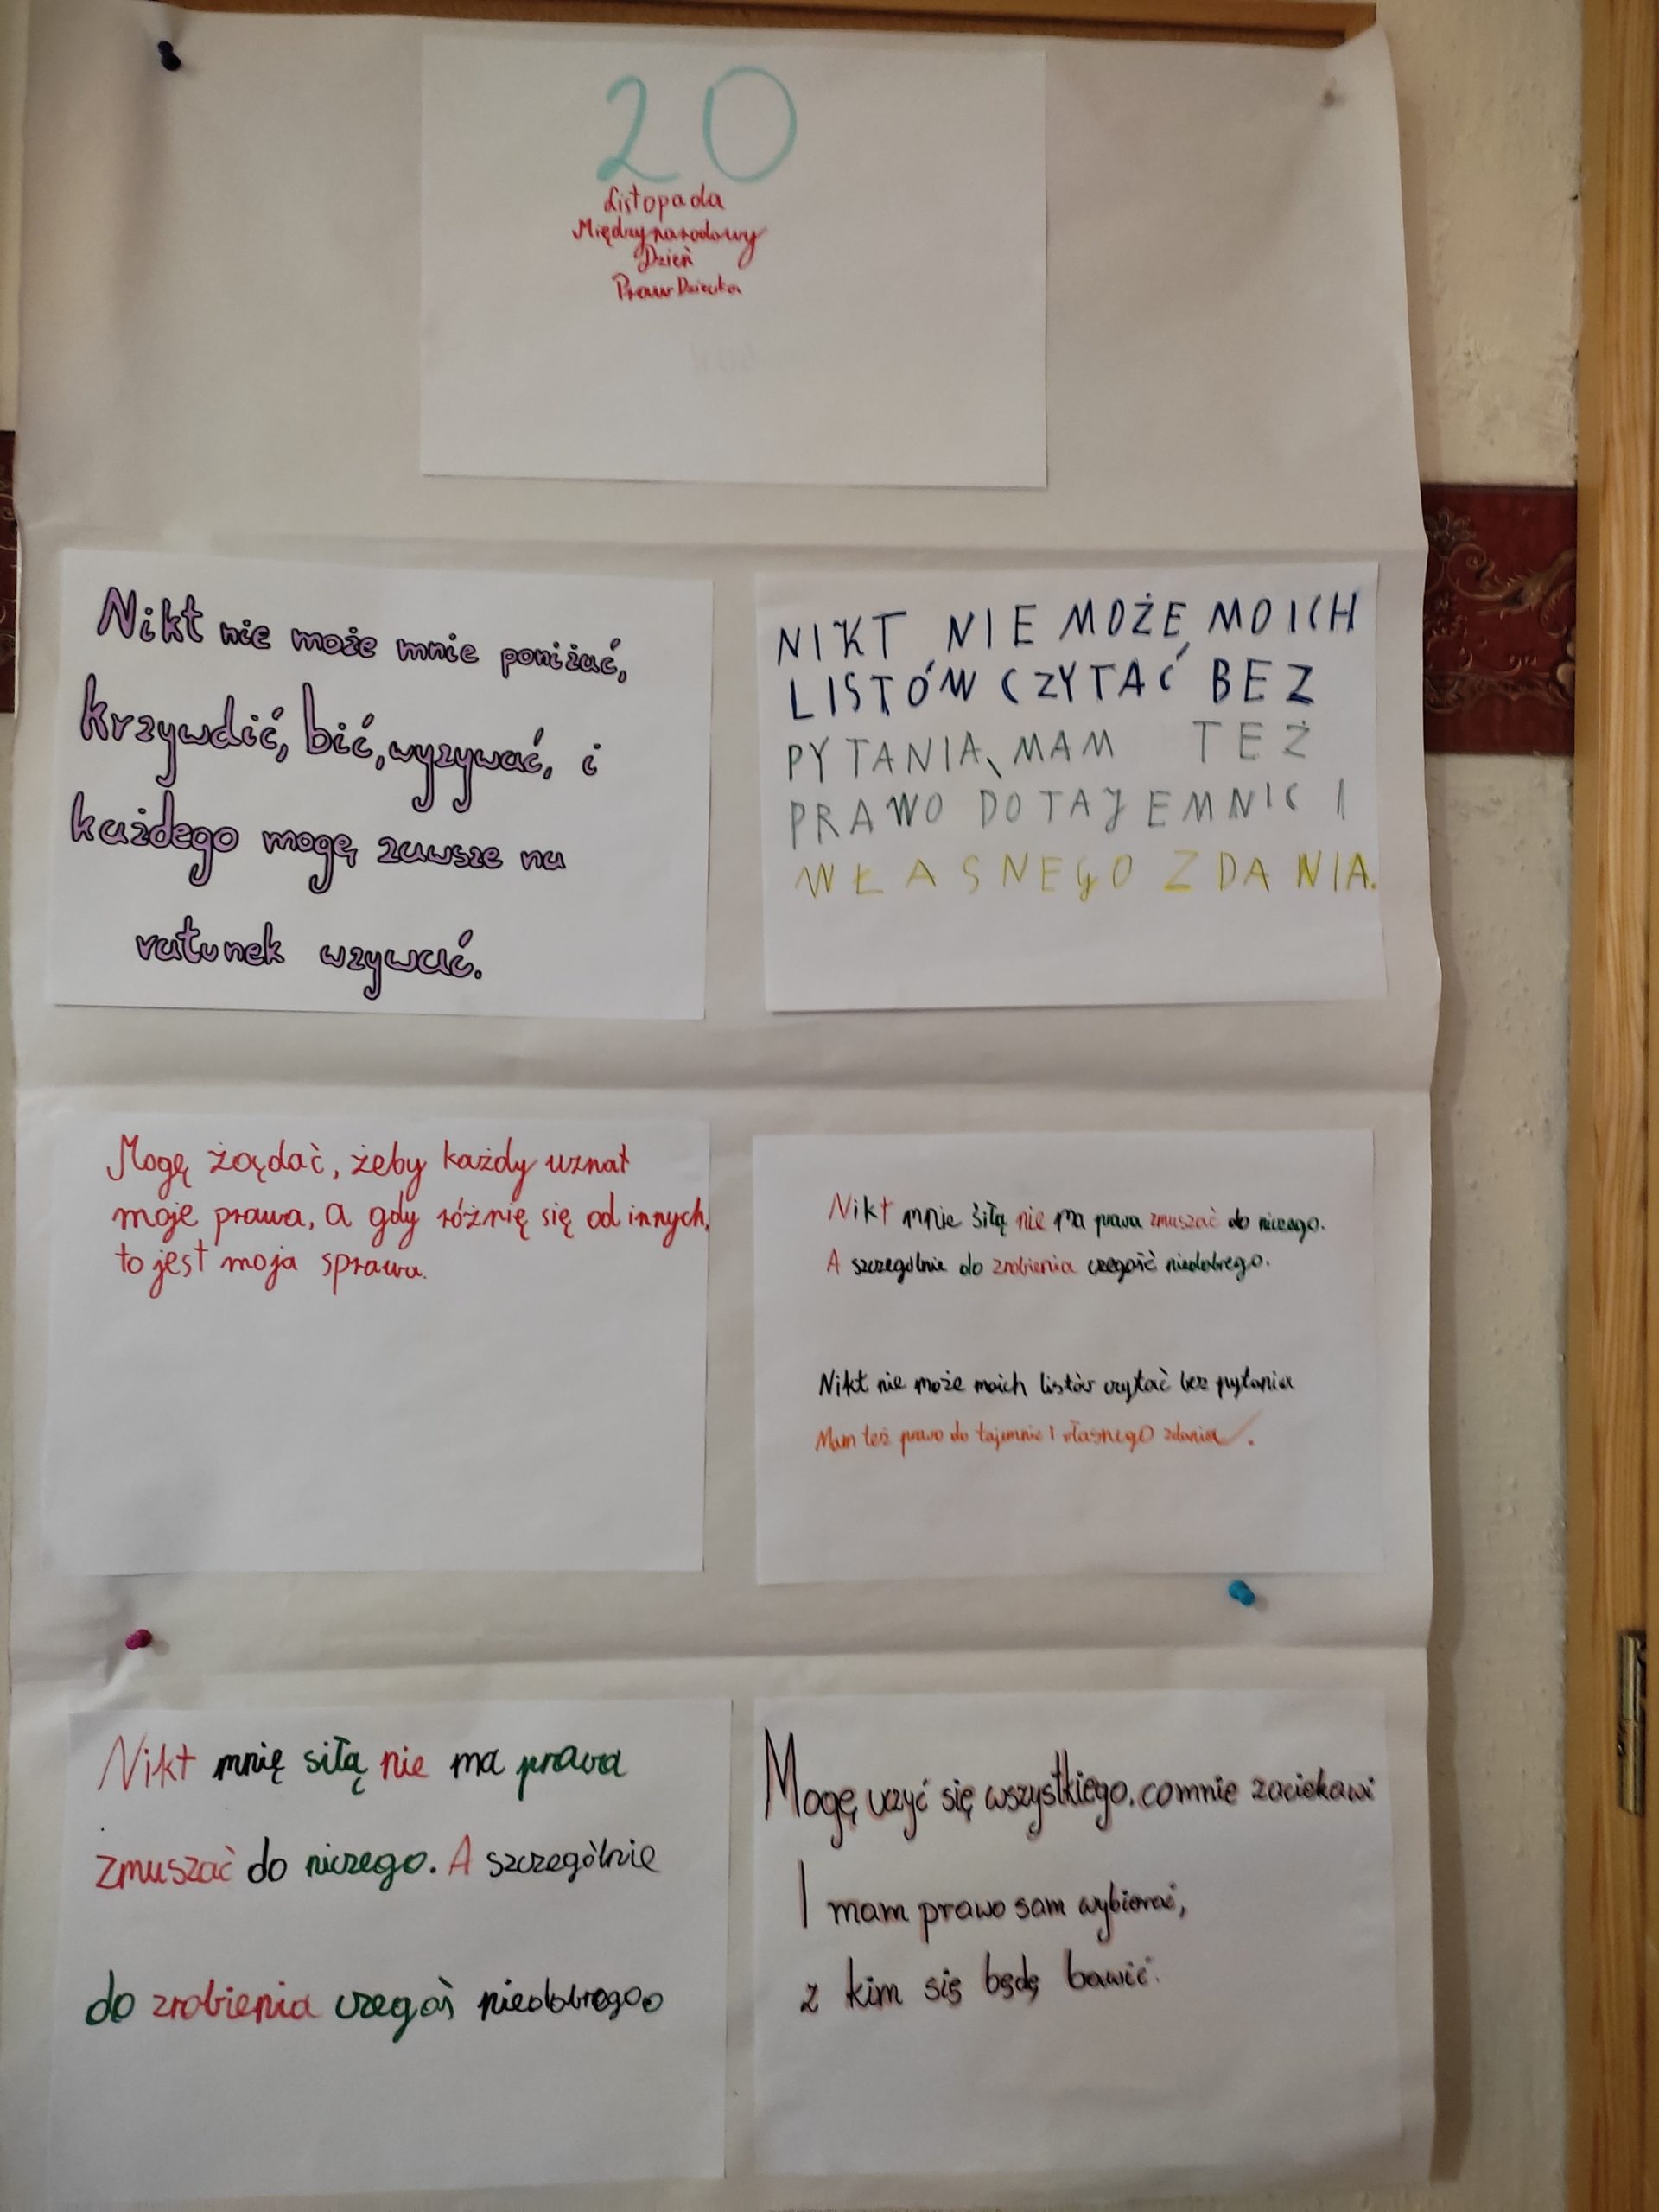 20
Listopada
Międzynarodowy
Dzień
Praw Dziecka
Nikt nie może mnie poniżać,
krzywdić, bić, wyzywać, i
każdego mogę zawsze na
ratunek wzywać.
NIKT NIE MOŻE MOICH
LISTÓW CZYTAĆ BEZ
PYTANIA, MAM TEŻ
PRAWO DO TAJEMNIC I
WŁASNEGO ZDANIA.
Mogę żądać, żeby każdy uznał
moje prawa, a gdy różnię się od innych,
to jest moja sprawa.
Nikt mnie siłą nie ma prawa zmuszać do niczego.
A szczególnie do zrobienia czegość niedobrego.
Nikt nie może moich listów czytać bez pytania
Mam też prawo do tajemnic I własnego zdania.
Nikt mnię siłą nie ma prawa
zmuszać do niczego. A szczególnie
do zrobienia czegoś niedobrego.
Mogę uczyć się wszystkiego, co mnie zaciekawi
I mam prawo sam wybierać,
z kim się będę bawić.